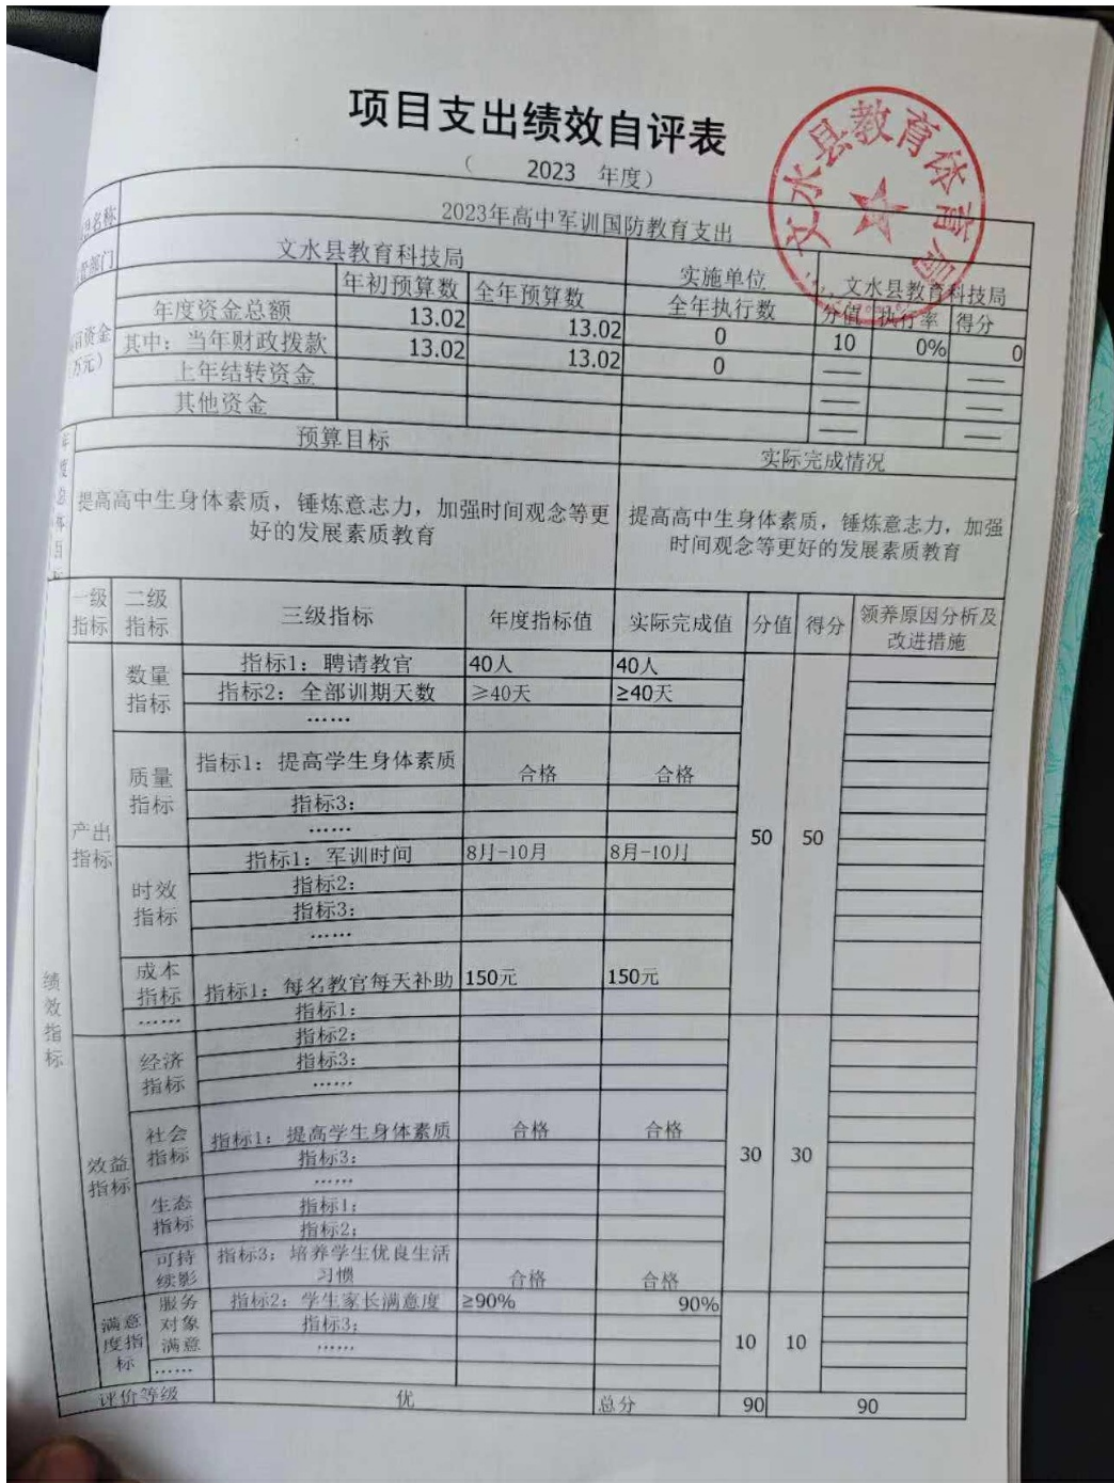 项目支出绩效自评表
( 2023 年度)
名称 2023年高中军训国防教育支出
部门 文水县教育科技局 实施单位 文水县教育科技局
资金 年初预算数 全年预算数 全年执行数 分值 执行率 得分
万元) 年度资金总额 13.02 13.02 0 10 0% 0
其中：当年财政拨款 13.02 13.02 0 —— ——
上年结转资金 —— ——
其他资金 —— ——
年度总体目标 预算目标 实际完成情况
提高高中生身体素质，锤炼意志力，加强时间观念等更 提高高中生身体素质，锤炼意志力，加强
好的发展素质教育 时间观念等更好的发展素质教育
一级 二级 三级指标 年度指标值 实际完成值 分值 得分 领养原因分析及
指标 指标 改进措施
绩效指标
产出指标
数量指标 指标1：聘请教官 40人 40人 50 50
指标2：全部训期天数 ≥40天 ≥40天
……
质量指标 指标1：提高学生身体素质 合格 合格
指标3：
……
时效指标 指标1：军训时间 8月-10月 8月-10月
指标2：
指标3：
……
成本指标 指标1：每名教官每天补助 150元 150元
…… 指标1：
效益指标
经济指标 指标2： 30 30
指标3：
……
社会指标 指标1：提高学生身体素质 合格 合格
指标3：
……
生态指标 指标1：
指标2：
可持续影 指标3：培养学生优良生活习惯 合格 合格
满意度指标
服务对象满意 指标2：学生家长满意度 ≥90% 90% 10 10
指标3：
……
……
评价等级 优 总分 90 90
文水县教育体育局